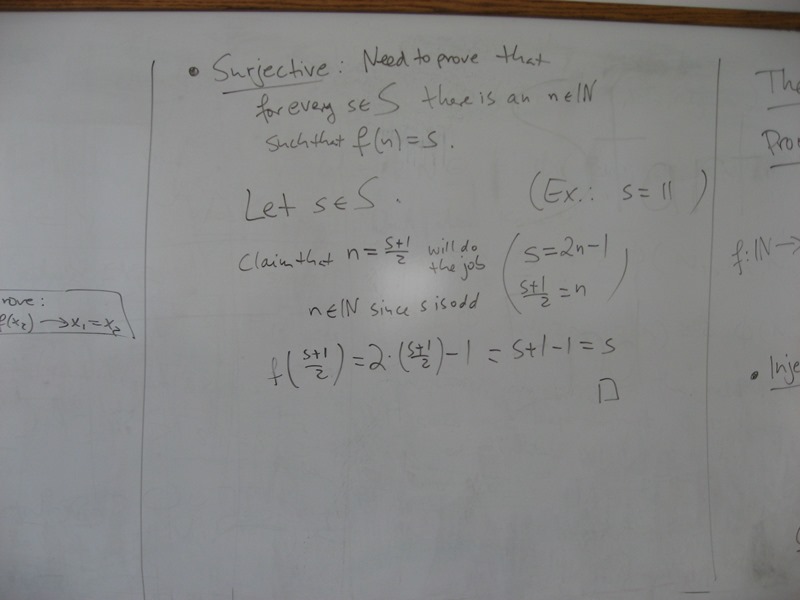 rove:
f(x₂) → x₁ = x₂
• Surjective: Need to prove that
for every s ∈ S there is an n ∈ ℕ
such that f(n) = s.
Let s ∈ S.
(Ex.: s = 11)
Claim that n = (s+1)/2 will do the job
(s = 2n-1
(s+1)/2 = n)
n ∈ ℕ since s is odd
f((s+1)/2) = 2·((s+1)/2) - 1 = s+1-1 = s
□
The
Proo
f: ℕ →
• Inje